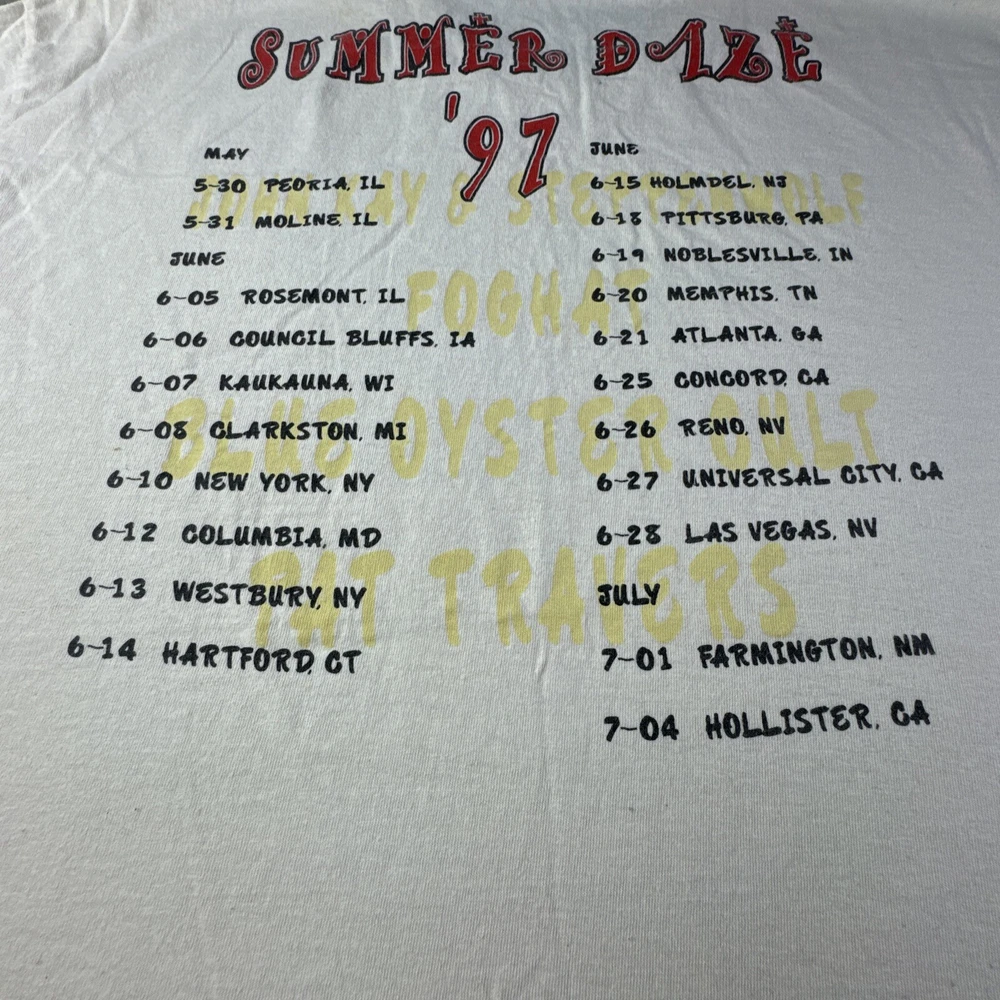 SUMMER DAZE
'97
MAY
5-30 PEORIA, IL
5-31 MOLINE, IL
JUNE
6-05 ROSEMONT, IL
6-06 COUNCIL BLUFFS, IA
6-07 KAUKAUNA, WI
6-08 CLARKSTON, MI
6-10 NEW YORK, NY
6-12 COLUMBIA, MD
6-13 WESTBURY, NY
6-14 HARTFORD, CT
JUNE
6-15 HOLMDEL, NJ
6-18 PITTSBURG, PA
6-19 NOBLESVILLE, IN
6-20 MEMPHIS, TN
6-21 ATLANTA, GA
6-25 CONCORD, CA
6-26 RENO, NV
6-27 UNIVERSAL CITY, CA
6-28 LAS VEGAS, NV
JULY
7-01 FARMINGTON, NM
7-04 HOLLISTER, CA
JOHN KAY & STEPPENWOLF
FOGHAT
BLUE OYSTER CULT
PAT TRAVERS